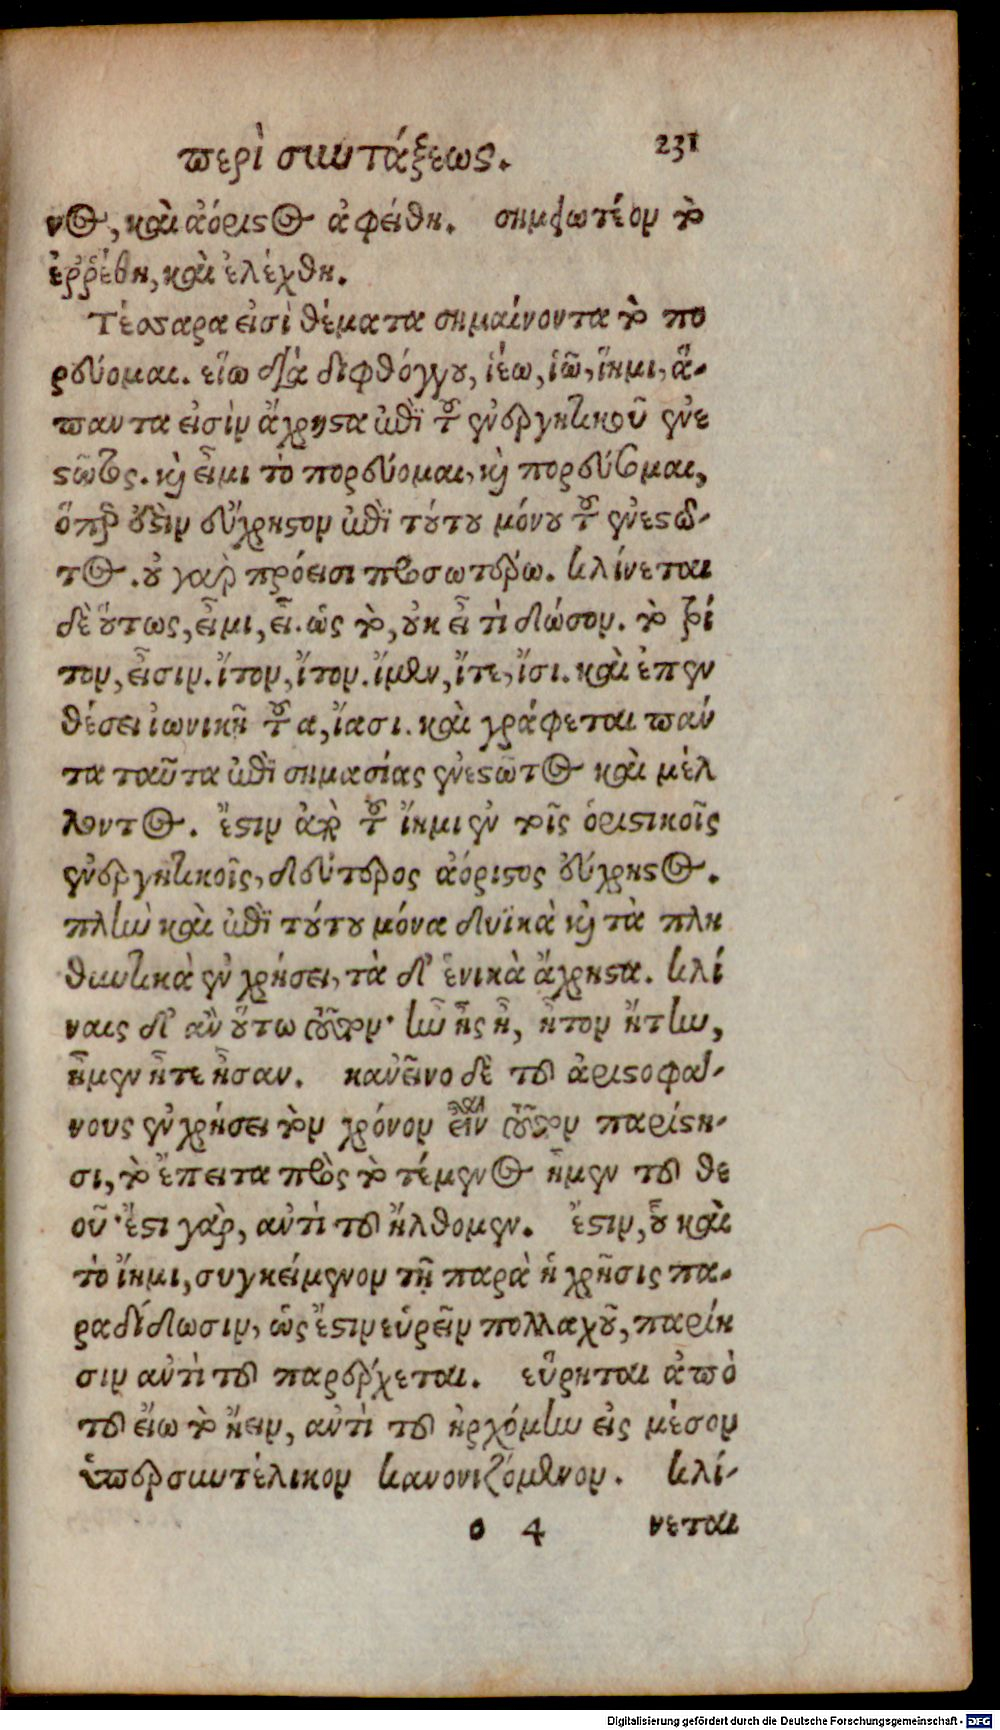 περὶ συντάξεως. 231
νος, καὶ ἀόριστος ἀφείθη. σημειωτέον τὸ
ἐῤῥέθη, καὶ ἐλέχθη.
Τέσσαρα εἰσὶ θέματα σημαίνοντα τὸ πο
ρεύομαι. εἴω διὰ διφθόγγου, ἱέω, ἱῶ, ἵημι, ἅ-
παντα εἰσὶν ἄχρηστα ἐπὶ τοῦ ἐνεργητικοῦ ἐνε
στῶτος. καὶ εἶμι τὸ πορεύομαι, καὶ πορεύσομαι,
ὅπερ ἐστὶν εὔχρηστον ἐπὶ τούτου μόνου τοῦ ἐνεστῶ-
τος. οὐ γὰρ πρόεισι προσωτέρω. κλίνεται
δὲ οὕτως, εἶμι, εἶ. ὡς τὸ, οὐκ εἶ τὶ δώσον. τὸ τρί
τον, εἶσιν. ἴτον, ἴτον. ἴμεν, ἴτε, ἴσι. καὶ ἐπεν
θέσει ἰωνικῇ τοῦ α, ἴασι. καὶ γράφεται πάν
τα ταῦτα ἐπὶ σημασίας ἐνεστῶτος καὶ μέλ
λοντος. ἔστιν ἀπὸ τοῦ ἴημι ἐν τοῖς ὁριστικοῖς
ἐνεργητικοῖς, δεύτερος ἀόριστος εὔχρηστος.
πλὴν καὶ ἐπὶ τούτου μόνα δυϊκὰ καὶ τὰ πλη
θυντικὰ ἐν χρήσει, τὰ δ' ἑνικὰ ἄχρηστα. κλί
ναις δ' ἂν οὕτω τοῦτον· ἦν ἧς ἧ, ἧτον ἥτην,
ἧμεν ἧτε ἧσαν. κἀνεῖνο δὲ τοῦ ἀριστοφά-
νους ἐν χρήσει τὸν χρόνον εἶναι τοῦτον παρίστη-
σι, τὸ ἔπειτα πρὸς τὸ τέμενος ἧμεν τοῦ θε
οῦ· ἔστι γὰρ, αὐτὶ τοῦ ἤλθομεν. ἔστιν, οὗ καὶ
τὸ ἵημι, συγκείμενον τῇ παρὰ ἡ χρῆσις πα-
ραδίδωσιν, ὡς ἔστιν εὑρεῖν πολλαχοῦ, παρίη
σιν αὐτὶ τοῦ παρέρχεται. εὕρηται ἀπὸ
τοῦ εἴω τὸ ἤειν, αὐτὶ τοῦ ἠρχόμην εἰς μέσον
ὑπερσυντέλικον κανονιζόμενον. κλί-
ο 4 νεται
Digitalisierung gefördert durch die Deutsche Forschungsgemeinschaft - DFG